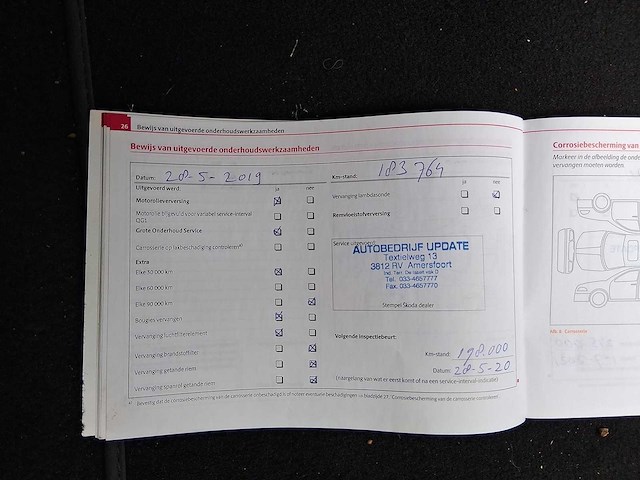 26 Bewijs van uitgevoerde onderhoudswerkzaamheden
Bewijs van uitgevoerde onderhoudswerkzaamheden
Datum: 28-5-2019
Uitgevoerd werd: ja nee
Motorolieverversing
Motorolie bijgevuld voor variabel service-interval
QG1
Grote Onderhoud Service
Carrosserie op lakbeschadiging controleren
Extra
Elke 30 000 km
Elke 60 000 km
Elke 90 000 km
Bougies vervangen
Vervanging luchtfilterelement
Vervanging brandstoffilter
Vervanging getande riem
Vervanging spanrol getande riem
Km-stand: 183 764
ja nee
Vervanging lambdasonde
Remvloeistofverversing
Service uitgevoerd
AUTOBEDRIJF UPDATE
Textielweg 13
3812 RV Amersfoort
Tel. 033-4657777
Fax. 033-4657770
Stempel Škoda dealer
Volgende inspectiebeurt:
Km-stand: 198.000
Datum: 28-5-20
(Afhankelijk van wat er eerst komt of na een service-interval-indicatie)
Bevestig dat de corrosiebescherming van de carrosserie onbeschadigd is of noteer eventuele beschadigingen op bladzijde 27, 'Corrosiebescherming van de carrosserie controleren'.
Corrosiebescherming van
Markeer in de afbeelding de onde
vervangen moeten worden.
Afb. 8 Carrosserie